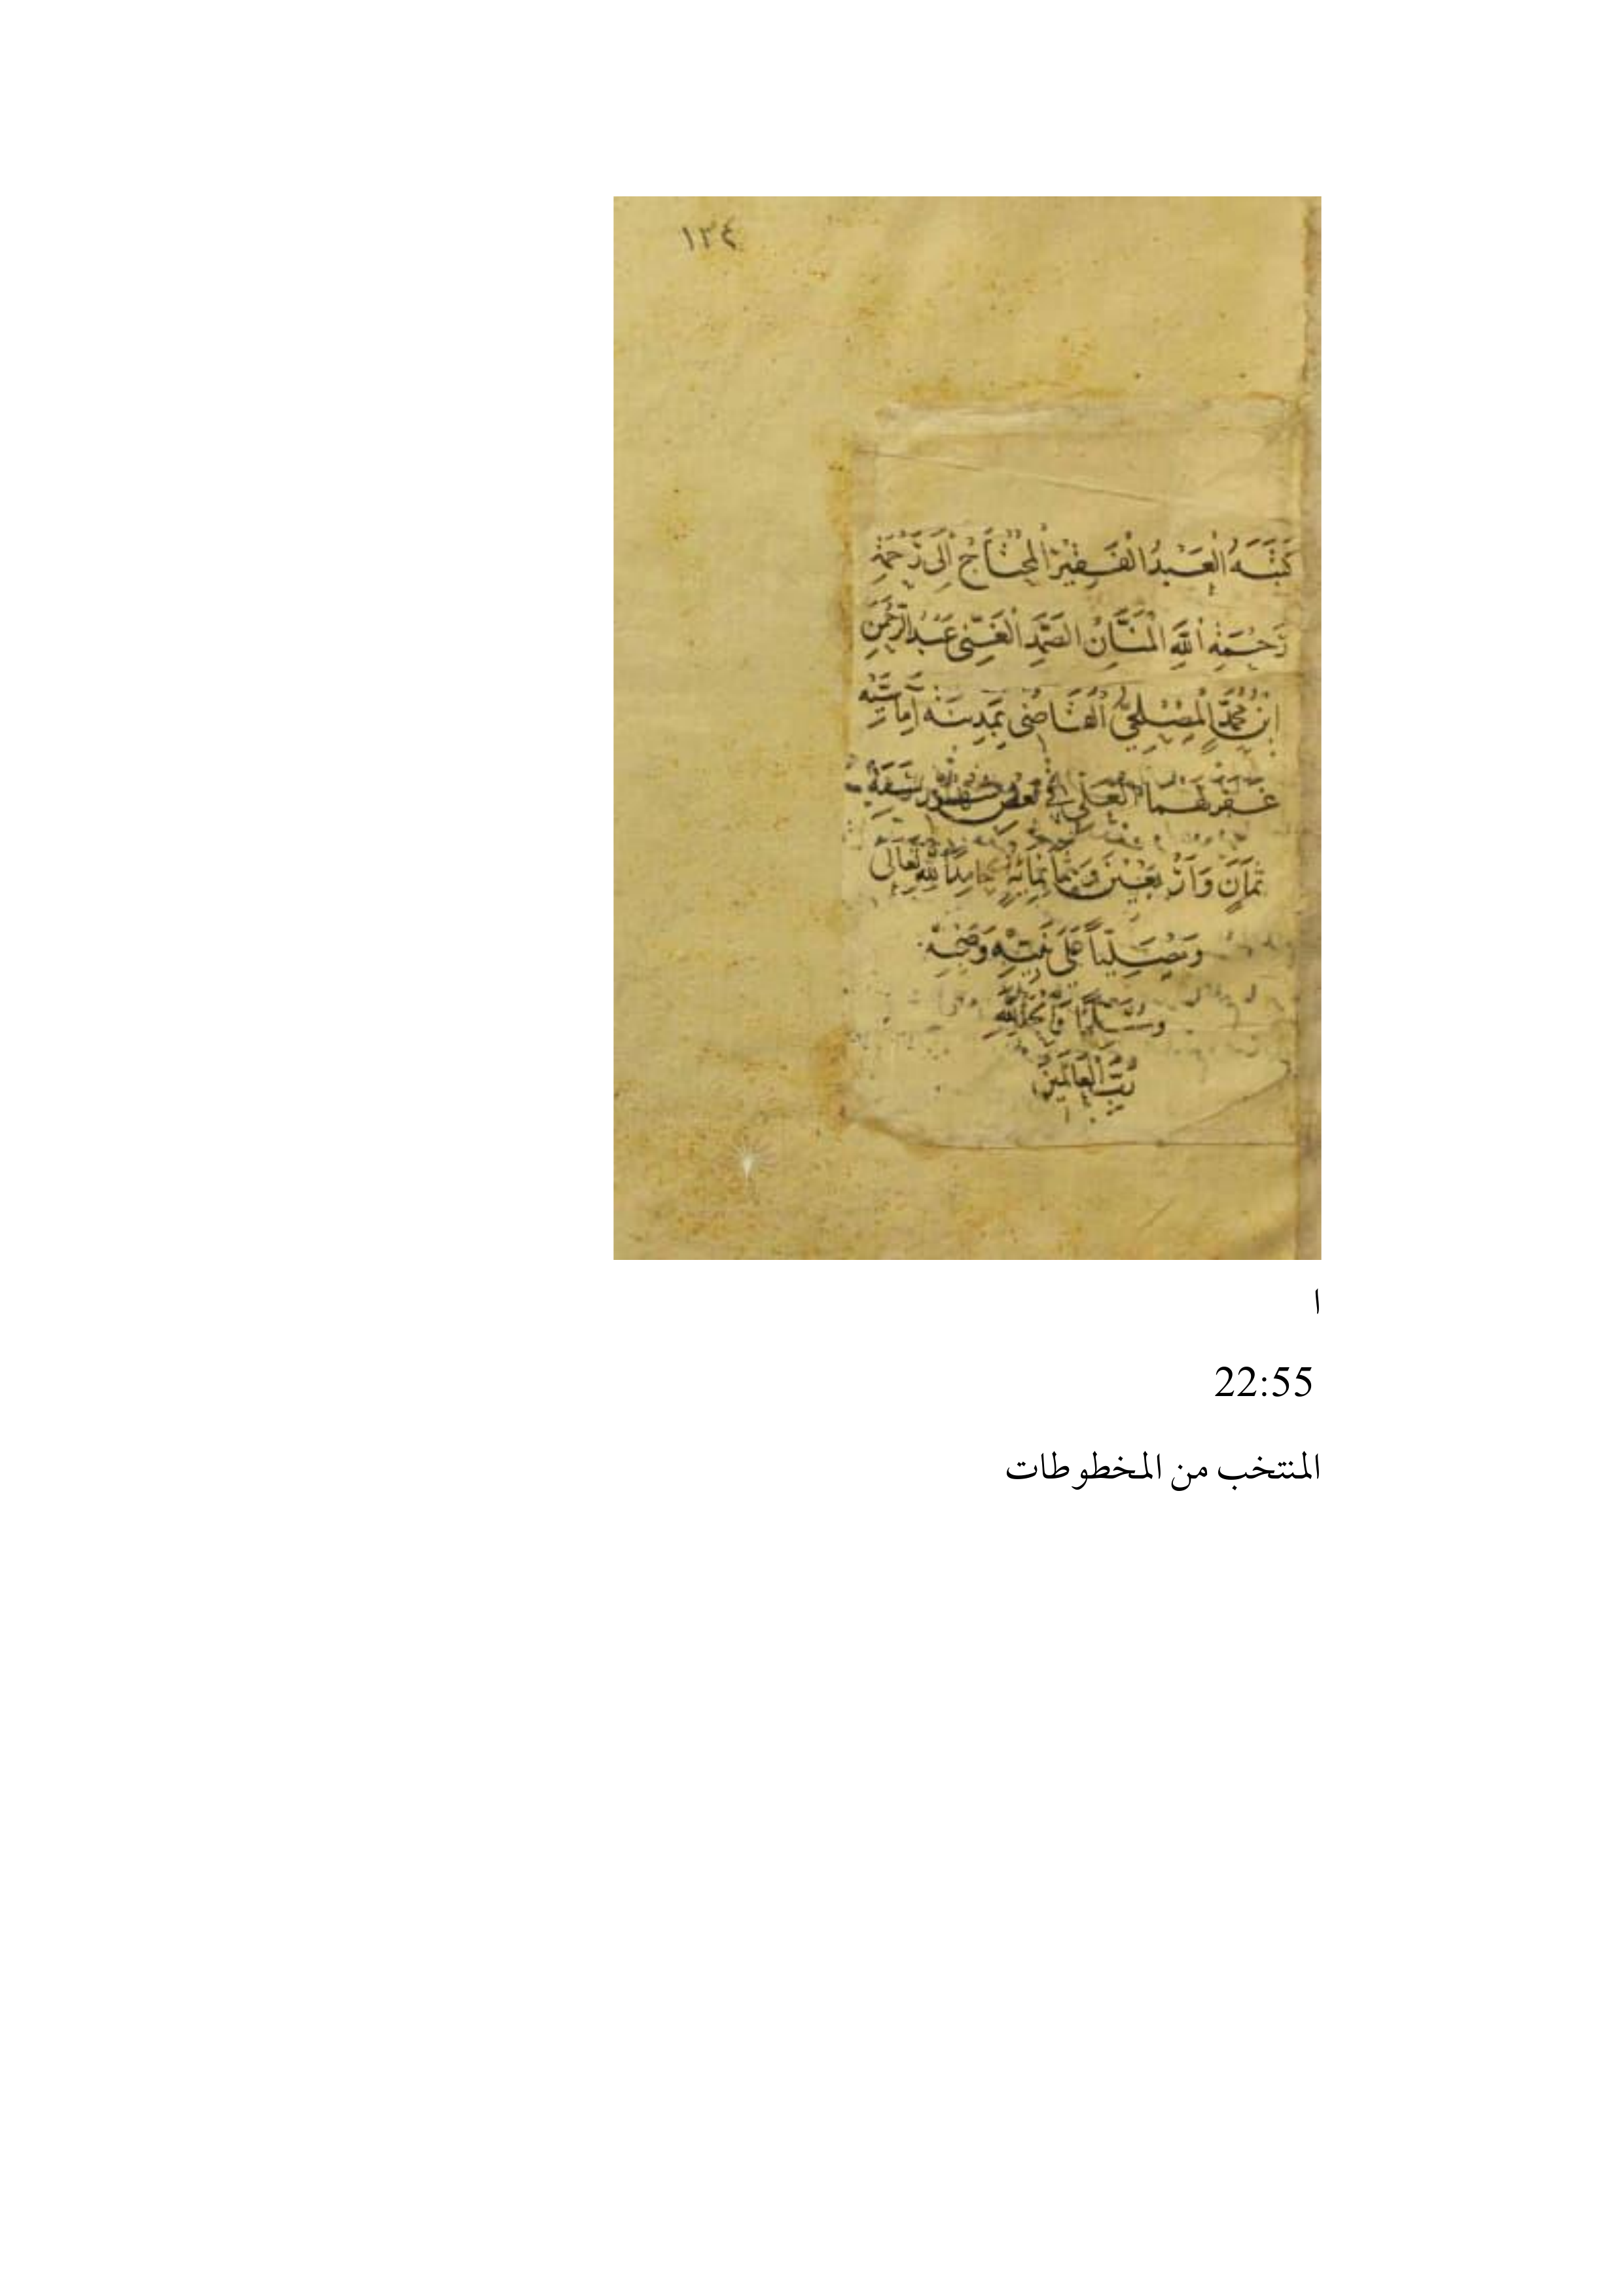 ١٣٤
كَتَبَهُ الْعَبْدُ الْفَقِيرُ الْمُحْتَاجُ إِلَى رَحْمَةِ
رَحْمَةِ اللَّهِ الْمَنَّانِ الصَّمَدِ الْغَنِيِّ عَبْدُ الرَّحْمَنِ
ابْنُ مُحَمَّدٍ الْمُصْلِحِيُّ الْقَاضِي بِمَدِينَةِ أَمَاسِيَّةَ
غفر لهما العلي في بعض شهور سنة
ثَمَانٍ وَأَرْبَعِينَ وَثَمَانِمِائَةٍ حَامِدًا لِلَّهِ تَعَالَى
وَمُصَلِّيًا عَلَى نَبِيِّهِ وَصَحْبِهِ
وَمُسَلِّمًا وَالْحَمْدُ لِلَّهِ
رَبِّ الْعَالَمِينَ
ا
22:55
المنتخب من المخطوطات